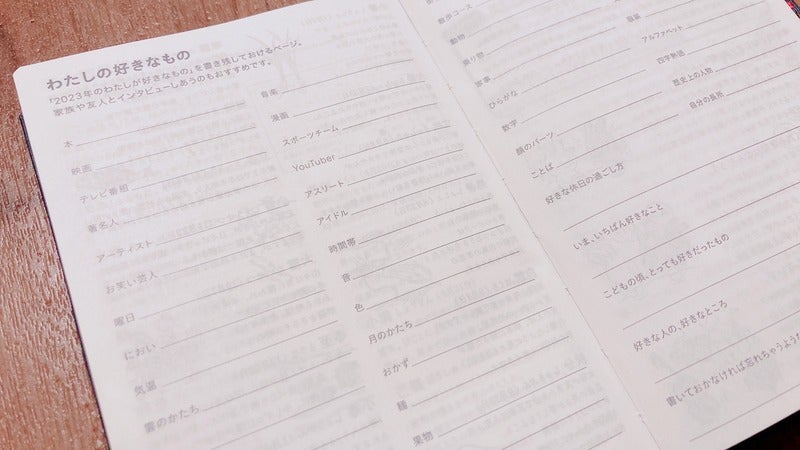 わたしの好きなもの
「2023年のわたしが好きなもの」を書き残しておけるページ。
家族や友人とインタビューしあうのもおすすめです。
本
映画
テレビ番組
著名人
アーティスト
お笑い芸人
曜日
におい
気温
雲のかたち
音楽
漫画
スポーツチーム
YouTuber
アスリート
アイドル
時間帯
音
色
月のかたち
おかず
麺
果物
散歩コース
動物
乗り物
家事
ひらがな
数字
顔のパーツ
ことば
アルファベット
四字熟語
歴史上の人物
自分の長所
好きな休日の過ごし方
いま、いちばん好きなこと
こどもの頃、とっても好きだったもの
好きな人の、好きなところ
書いておかなければ忘れちゃうような